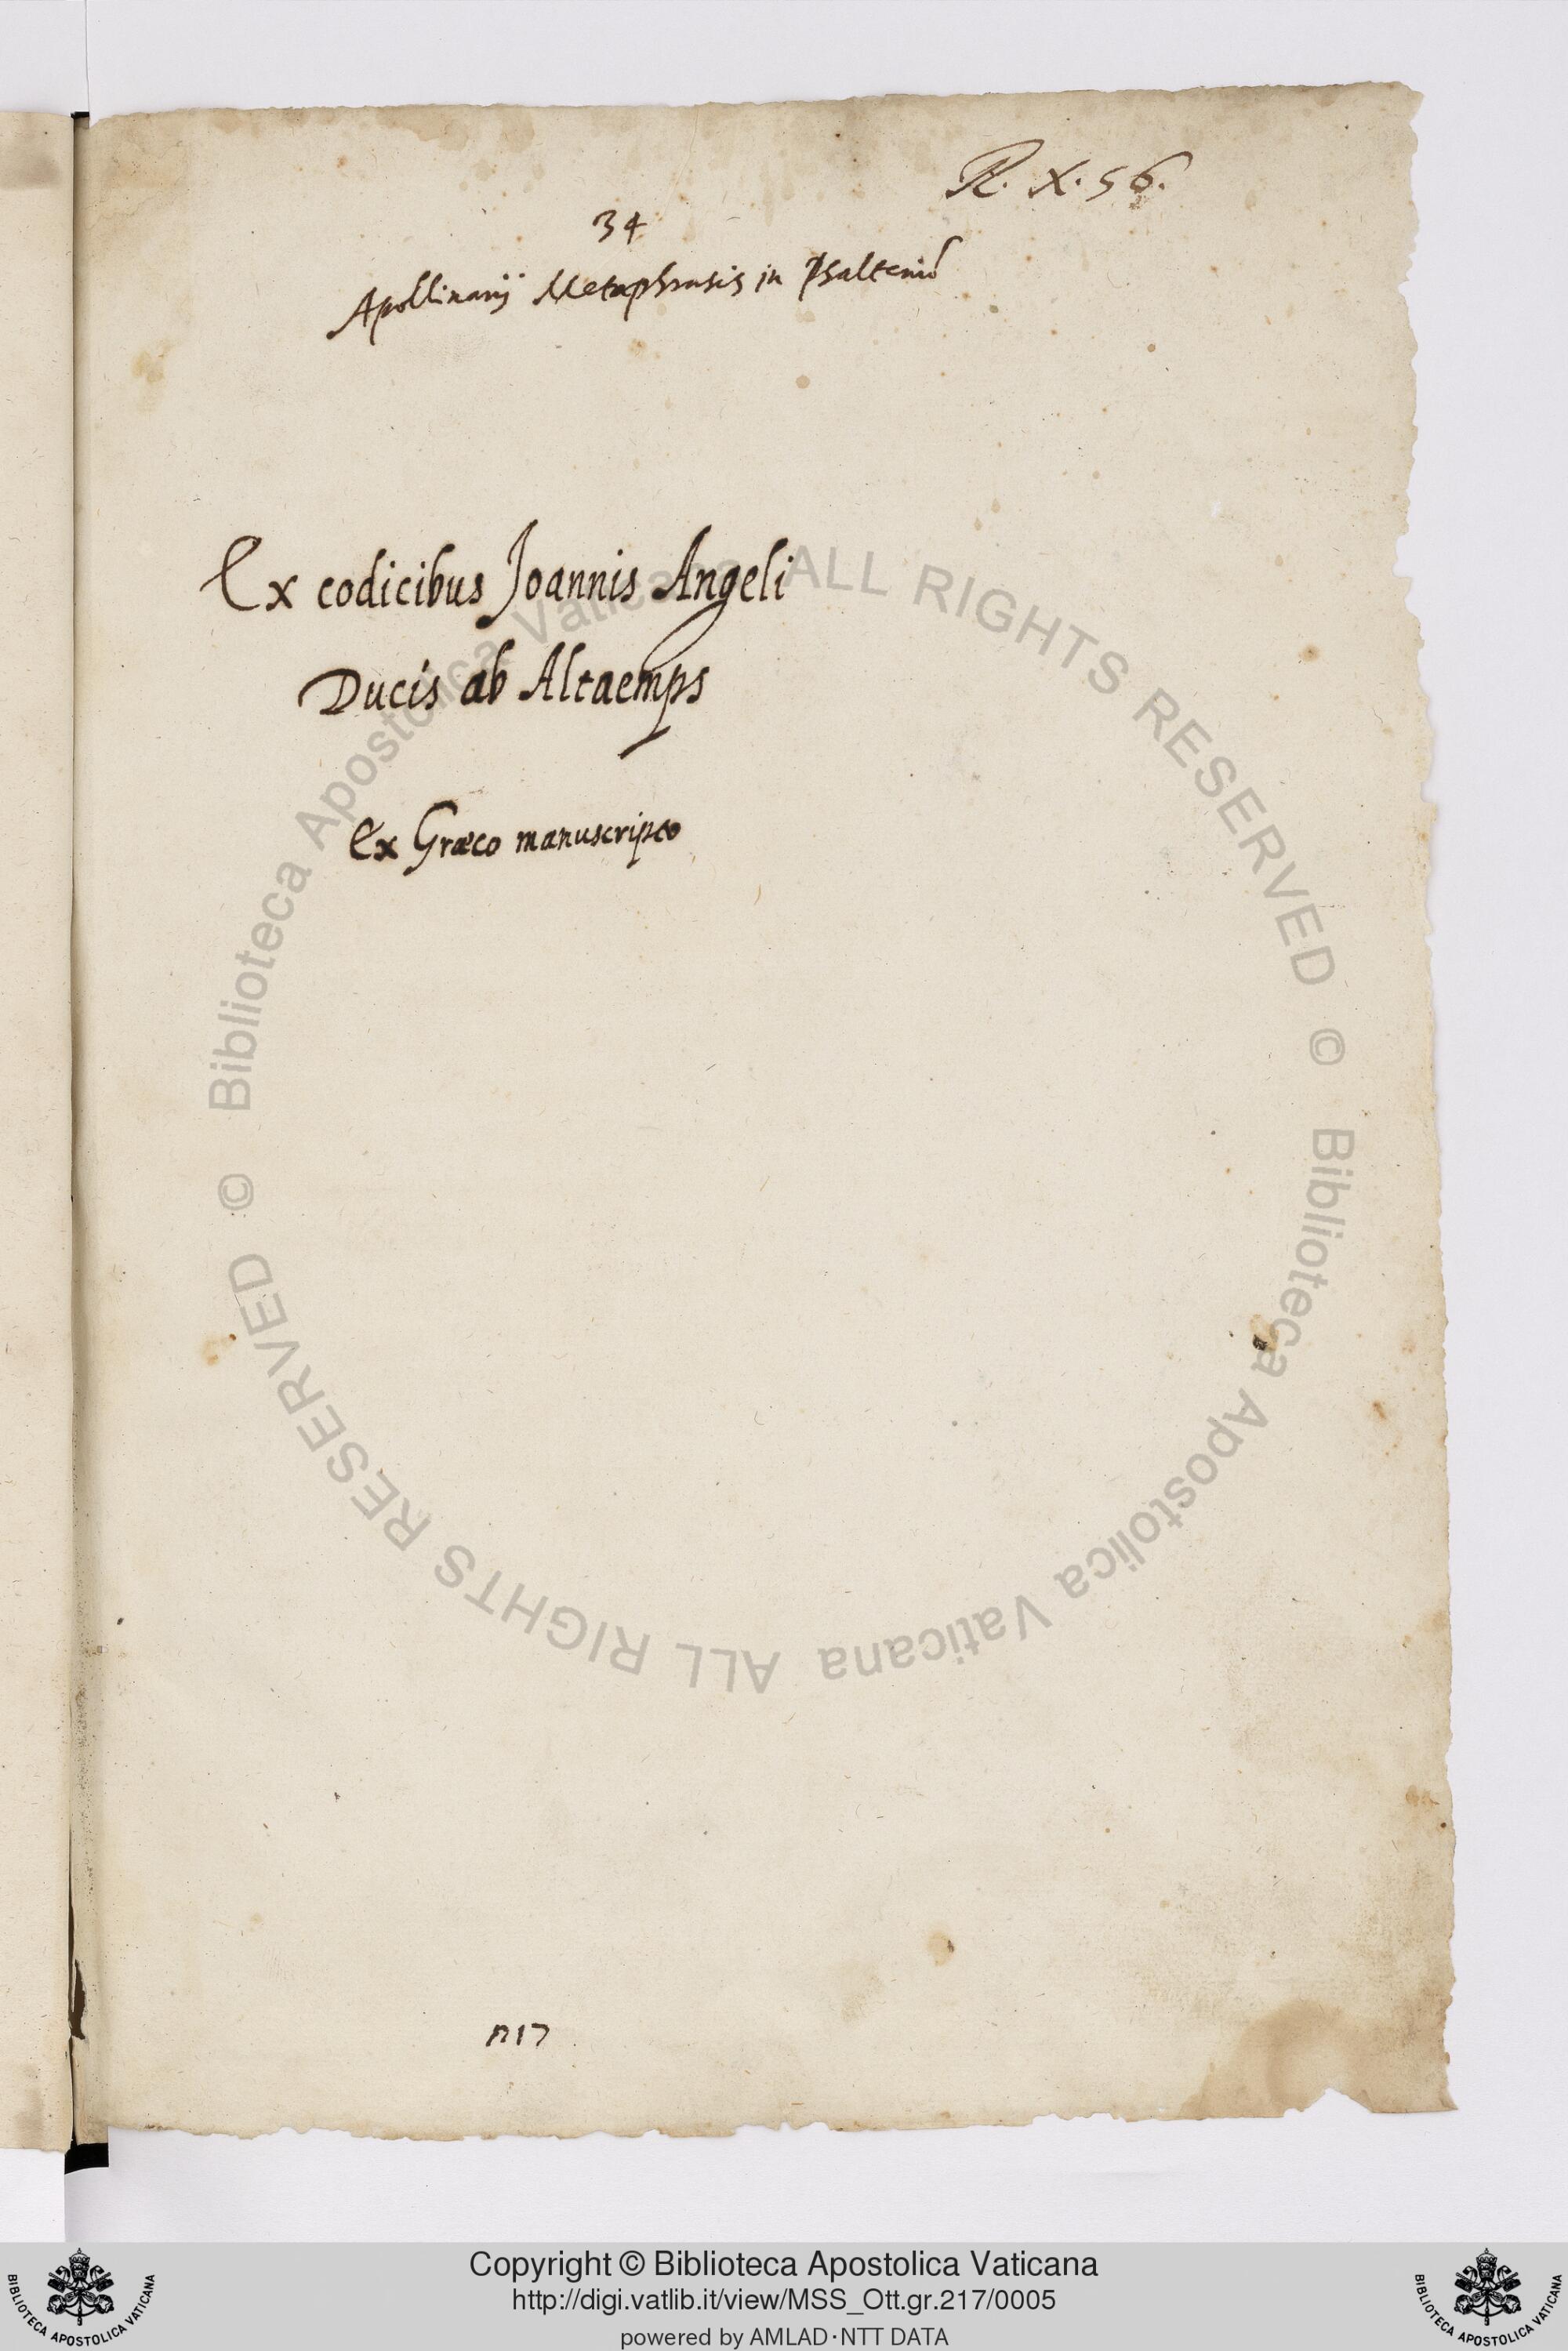 R. X. 56.
34
Apollinarij Metaphrasis in Psalteriũ
Ex codicibus Joannis Angeli
Ducis ab Altaemps
Ex Græco manuscripto
n17
© Biblioteca Apostolica Vaticana ALL RIGHTS RESERVED
© Biblioteca Apostolica Vaticana ALL RIGHTS RESERVED
Copyright © Biblioteca Apostolica Vaticana
http://digi.vatlib.it/view/MSS_Ott.gr.217/0005
powered by AMLAD·NTT DATA
BIBLIOTECA APOSTOLICA VATICANA
BIBLIOTECA APOSTOLICA VATICANA